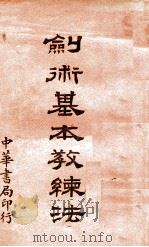 劍術基本教練法
中華書局印行
mtoou.info